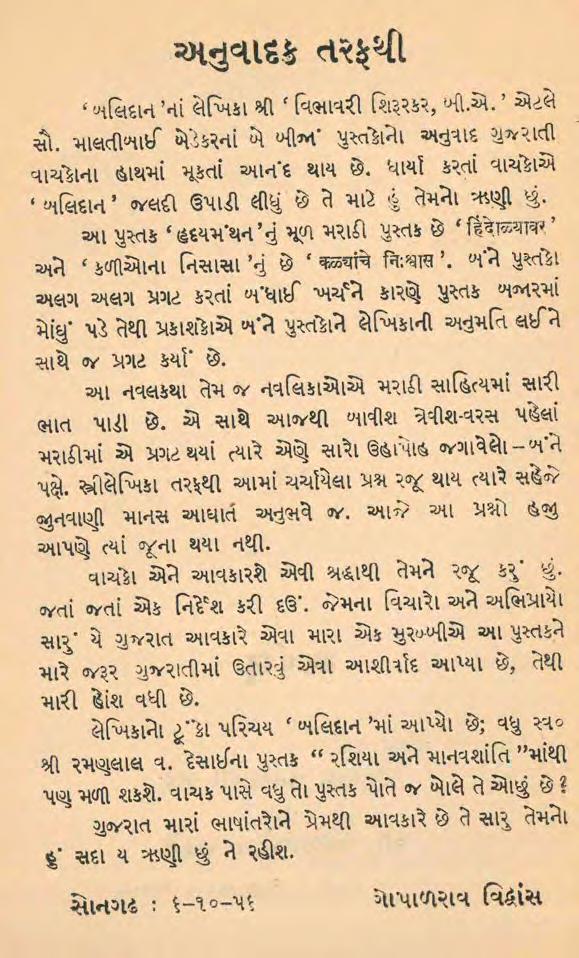 અનુવાદક તરફથી
‘ બલિદાન ’નાં લેખિકા શ્રી ‘ વિભાવરી શિરૂરકર, બી.એ. ’ એટલે
સૌ. માલતીબાઈ બેડેકરનાં બે બીજાં પુસ્તકોનો અનુવાદ ગુજરાતી
વાચકોના હાથમાં મૂકતાં આનંદ થાય છે. ધાર્યા કરતાં વાચકોએ
‘ બલિદાન ’ જલદી ઉપાડી લીધું છે તે માટે હું તેમનો ઋણી છું.
આ પુસ્તક ‘ હૃદયમંથન ’નું મૂળ મરાઠી પુસ્તક છે ‘ हिंदोळ्यावर ’
અને ‘ કળીઓના નિસાસા ’નું છે ‘ कळ्यांचे निःश्वास ’. બંને પુસ્તકો
અલગ અલગ પ્રગટ કરતાં બંધાઈ ખર્ચને કારણે પુસ્તક બજારમાં
મોંઘું પડે તેથી પ્રકાશકોએ બંને પુસ્તકોને લેખિકાની અનુમતિ લઈને
સાથે જ પ્રગટ કર્યાં છે.
આ નવલકથા તેમ જ નવલિકાઓએ મરાઠી સાહિત્યમાં સારી
ભાત પાડી છે. એ સાથે આજથી બાવીશ ત્રેવીશ-વરસ પહેલાં
મરાઠીમાં એ પ્રગટ થયાં ત્યારે એણે સારો ઉહાપોહ જગાવેલો – બંને
પક્ષે. સ્ત્રીલેખિકા તરફથી આમાં ચર્ચાયેલા પ્રશ્ન રજૂ થાય ત્યારે સહેજે
જુનવાણી માનસ આઘાત અનુભવે જ. આજે આ પ્રશ્નો હજી
આપણે ત્યાં જૂના થયા નથી.
વાચકો એને આવકારશે એવી શ્રદ્ધાથી તેમને રજૂ કરું છું.
જતાં જતાં એક નિર્દેશ કરી દઉં. જેમના વિચારો અને અભિપ્રાયો
સારું યે ગુજરાત આવકારે એવા મારા એક મુરબ્બીએ આ પુસ્તકને
મારે જરૂર ગુજરાતીમાં ઉતારવું એવા આશીર્વાદ આપ્યા છે, તેથી
મારી હોંશ વધી છે.
લેખિકાનો ટૂંકો પરિચય ‘ બલિદાન ’માં આપ્યો છે; વધુ સ્વ૦
શ્રી રમણલાલ વ. દેસાઈના પુસ્તક “ રશિયા અને માનવશાંતિ ”માંથી
પણ મળી શકશે. વાચક પાસે વધુ તો પુસ્તક પોતે જ બોલે તે ઓછું છે ?
ગુજરાત મારાં ભાષાંતરોને પ્રેમથી આવકારે છે તે સારુ તેમનો
હું સદા ય ઋણી છું ને રહીશ.
સોનગઢ : ૬-૧૦-૫૬ ગોપાળરાવ વિદ્વાંસ